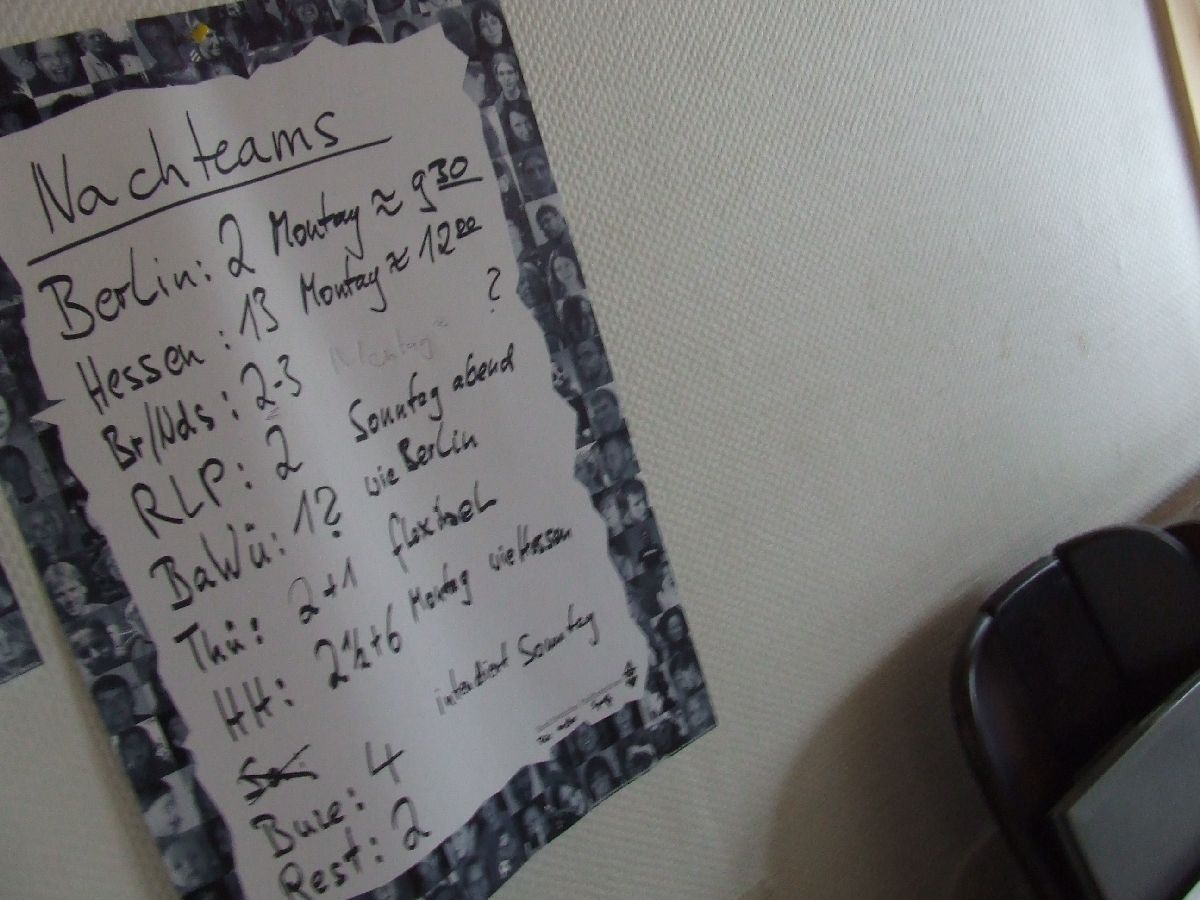 Nachteams
Berlin: 2 Montag ≈ 9 30
Hessen: 13 Montag ≈ 12 00
Br/Nds: 2-3 Montag ≈ ?
RLP: 2 Sonntag abend
BaWü: 1? wie Berlin
Thü: 2+1 flexibel
HH: 2 1/2+6 Montag wie Hessen
intendiert Sonntag
Bure: 4
Rest: 2